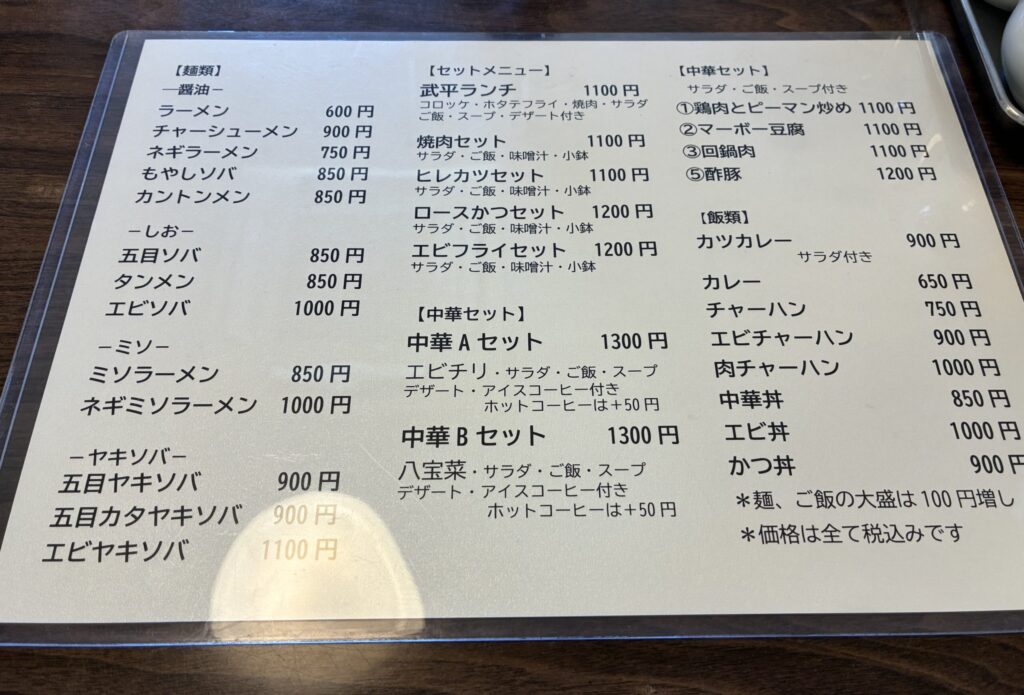 【麺類】
―醤油―
ラーメン 600円
チャーシューメン 900円
ネギラーメン 750円
もやしソバ 850円
カントンメン 850円
―しお―
五目ソバ 850円
タンメン 850円
エビソバ 1000円
―ミソ―
ミソラーメン 850円
ネギミソラーメン 1000円
―ヤキソバ―
五目ヤキソバ 900円
五目カタヤキソバ 900円
エビヤキソバ 1100円
【セットメニュー】
武平ランチ 1100円
コロッケ・ホタテフライ・焼肉・サラダ
ご飯・スープ・デザート付き
焼肉セット 1100円
サラダ・ご飯・味噌汁・小鉢
ヒレカツセット 1100円
サラダ・ご飯・味噌汁・小鉢
ロースかつセット 1200円
サラダ・ご飯・味噌汁・小鉢
エビフライセット 1200円
サラダ・ご飯・味噌汁・小鉢
【中華セット】
中華Aセット 1300円
エビチリ・サラダ・ご飯・スープ
デザート・アイスコーヒー付き
ホットコーヒーは+50円
中華Bセット 1300円
八宝菜・サラダ・ご飯・スープ
デザート・アイスコーヒー付き
ホットコーヒーは+50円
【中華セット】
サラダ・ご飯・スープ付き
①鶏肉とピーマン炒め 1100円
②マーボー豆腐 1100円
③回鍋肉 1100円
⑤酢豚 1200円
【飯類】
カツカレー 900円
サラダ付き
カレー 650円
チャーハン 750円
エビチャーハン 900円
肉チャーハン 1000円
中華丼 850円
エビ丼 1000円
かつ丼 900円
*麺、ご飯の大盛は100円増し
*価格は全て税込みです